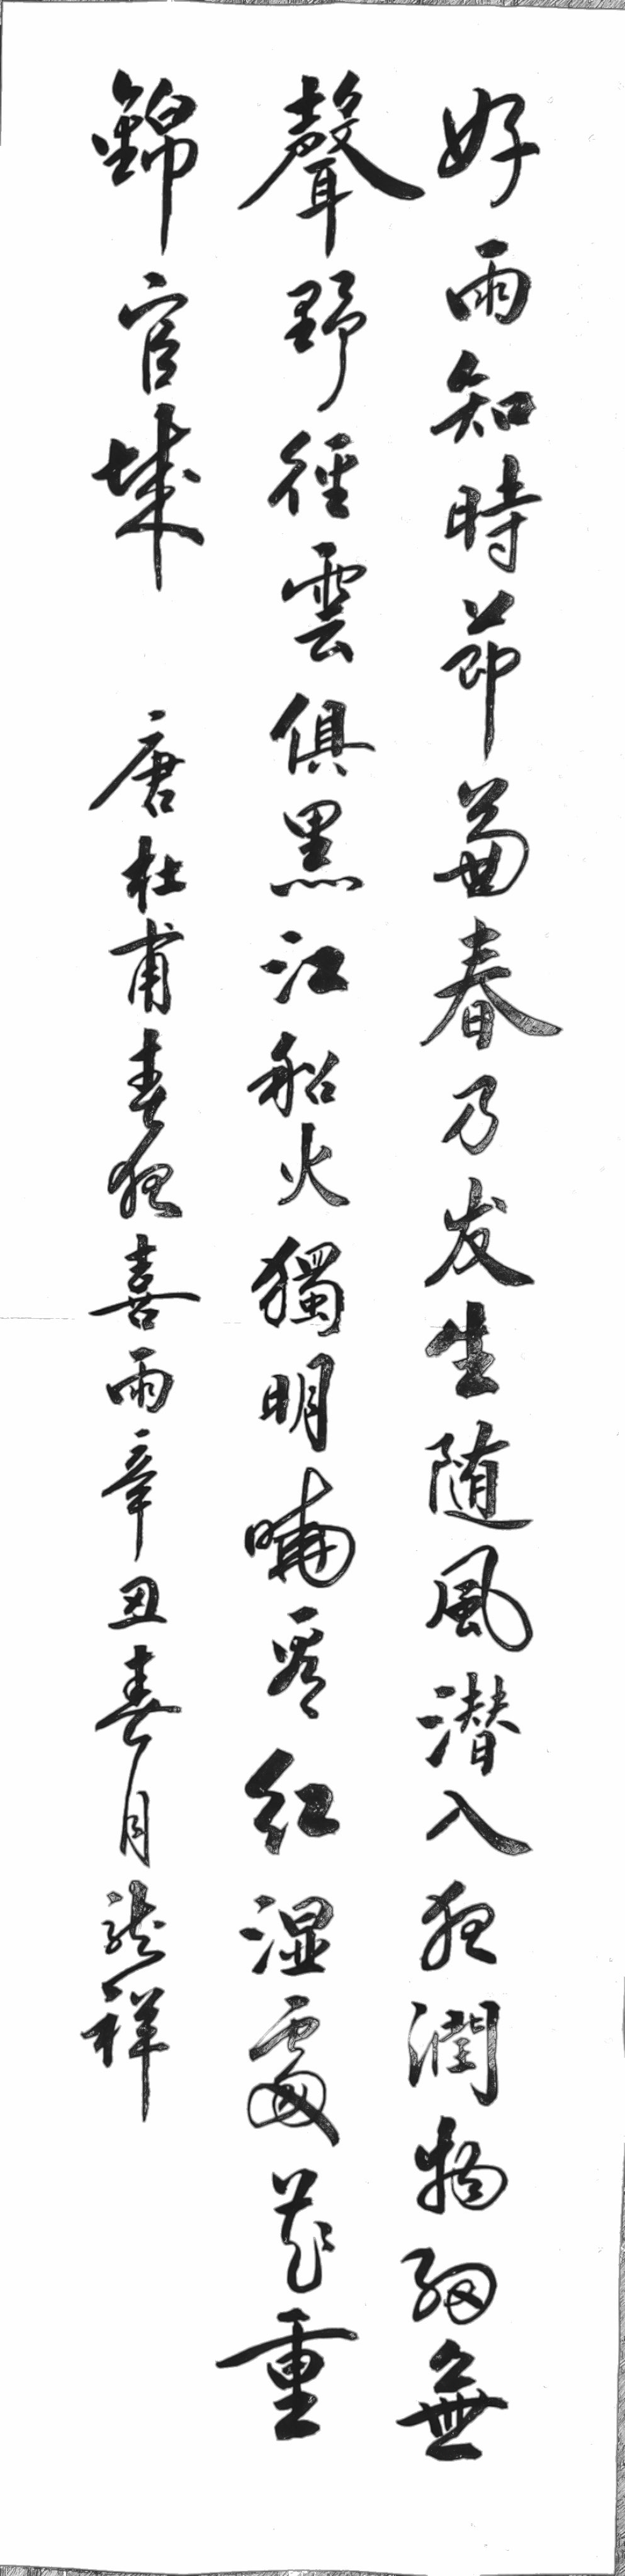 好雨知時節當春乃发生随風潜入夜潤物細無
聲野徑雲俱黑江船火獨明曉看红湿處花重
錦官城 唐杜甫春夜喜雨辛丑春月龍祥